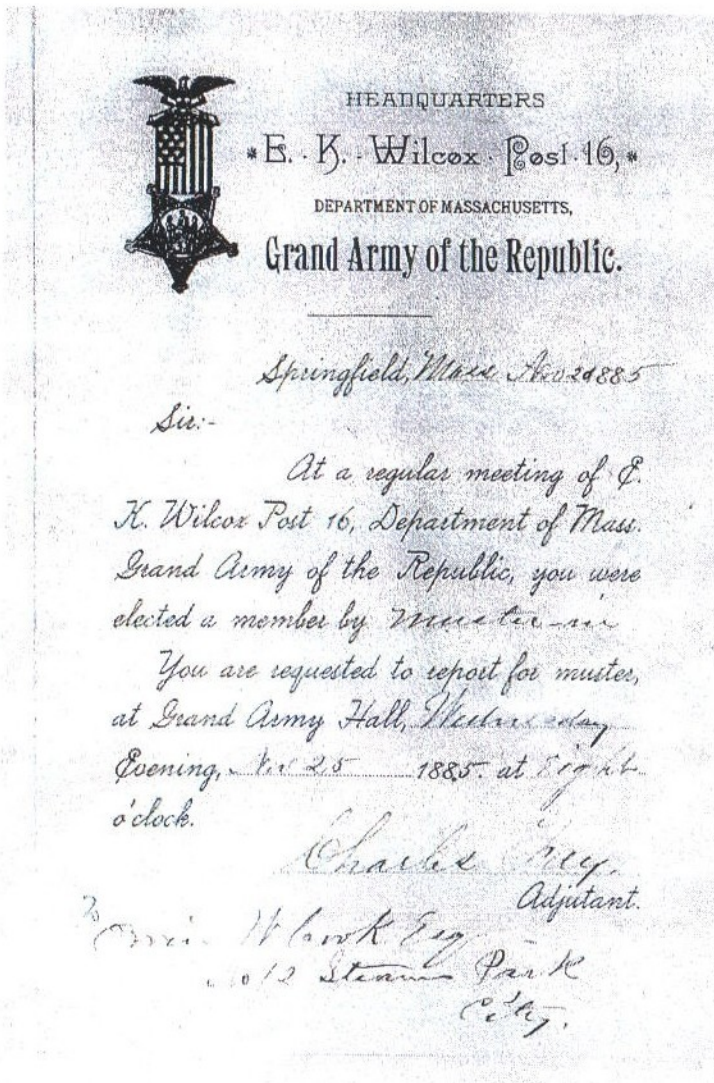 HEADQUARTERS
E. K. Wilcox Post 16,
DEPARTMENT OF MASSACHUSETTS,
Grand Army of the Republic.
Springfield, Mass Nov 1885
Sir:-
At a regular meeting of E.
K. Wilcox Post 16, Department of Mass.
Grand Army of the Republic, you were
elected a member by muster-in
You are requested to report for muster,
at Grand Army Hall, Wednesday
Evening, Nov 25 1885. at Eight
o'clock.
Charles
Adjutant.
To
W Cook Esq
No 12 Stearns Park
City.